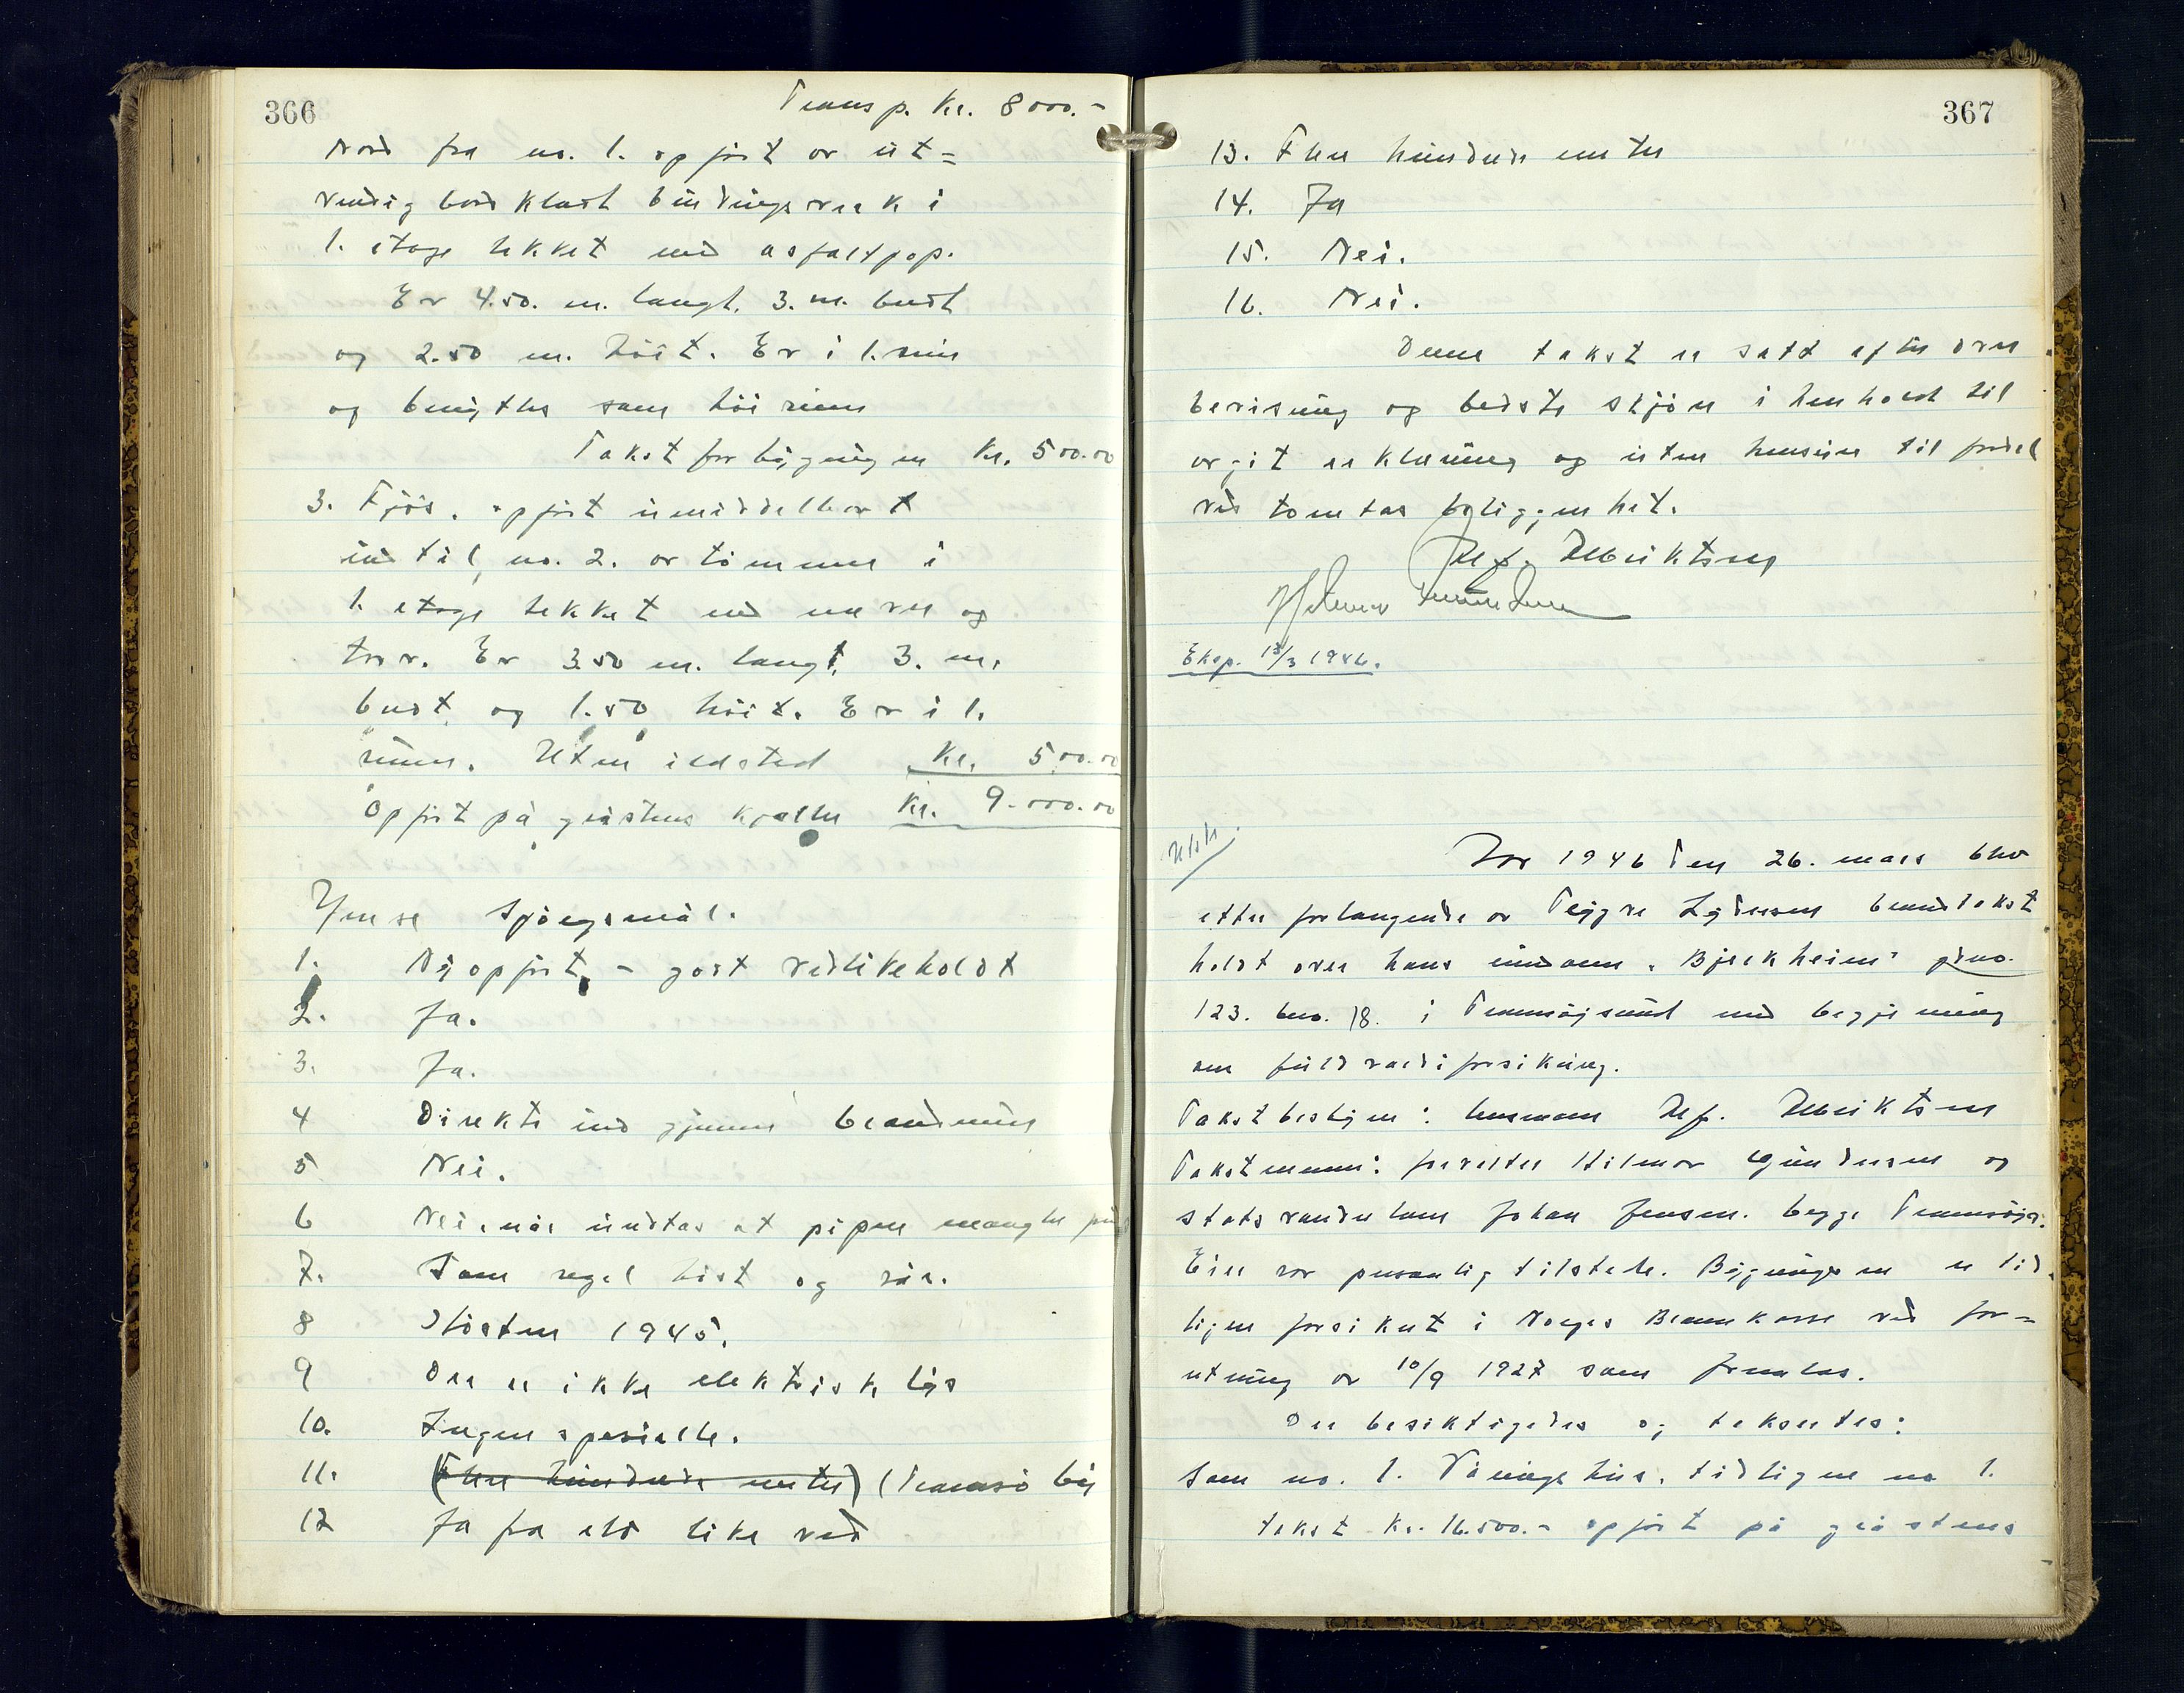 366
Transp. Kr. 8000.-
Nord fra no. 1. opført av ut=
vendig bordklædt bindingsverk i
1. etage tekket med asfaltpap.
Er 4.50. m. langt. 3. m. bredt
og 2.50 m. høit. Er i 1. rum
og benyttes som høirum
Takst for bygningen Kr. 500.00
3. Fjøs. opført umiddelbart
ind til no. 2. av tømmer i
1. etage tekket med never og
torv. Er 3.50 m. langt. 3. m.
bredt og 1.50 høit. Er i 1.
rum. Uten ildsted Kr. 500.00
Opført på gråstens kjæller Kr. 9.000.00
Ymse spörgsmål.
1. Ny opført, - godt vedlikeholdt
2. Ja.
3. Ja.
4 Direkte ind gjennem brandmur
5 Nei.
6 Nei, når undtas at pipen mangler
7. Som regel höst og vår.
8 Høsten 1945.
9 Der er ikke elektrisk lys
10. Ingen spesielle.
11. (Flere hundrede meter) (Tromsø by
12 Ja fra elv like ved
367
13. Flere hundrede meter
14. Ja
15. Nei.
16. Nei.
Denne takst er satt efter over
bevisning og bedste skjøn i henhold til
avgit erklæring og uten hensyn til fordel
ved tomtas beliggenhet.
Alf. Albriktsen
Hilmar Gundersen
Eksp. 13/3 1946.
År 1946 den 26. mars blev
etter forlangende av Trygve Lydersen brandtakst
holdt over hans eiendom "Bjerkheim" gårdsno.
123. bno. 18. i Tromsøysund med begjæring
om fuldverdiforsikring.
Takstbestyrer: lensmann Alf. Albriktsen
Takstmenn: forvalter Hilmar Gundersen og
Johan Jensen. begge Tromsøya.
Eier var personlig tilstede. Bygningen er tid
ligere forsikret i Norges Brannkasse ved for=
retning av 10/9 1927 som fremlas.
Der besiktigedes og taksertes:
Som no. 1. Våningshus. tidligere no 1.
takst kr. 16.500.- opført på gråstens